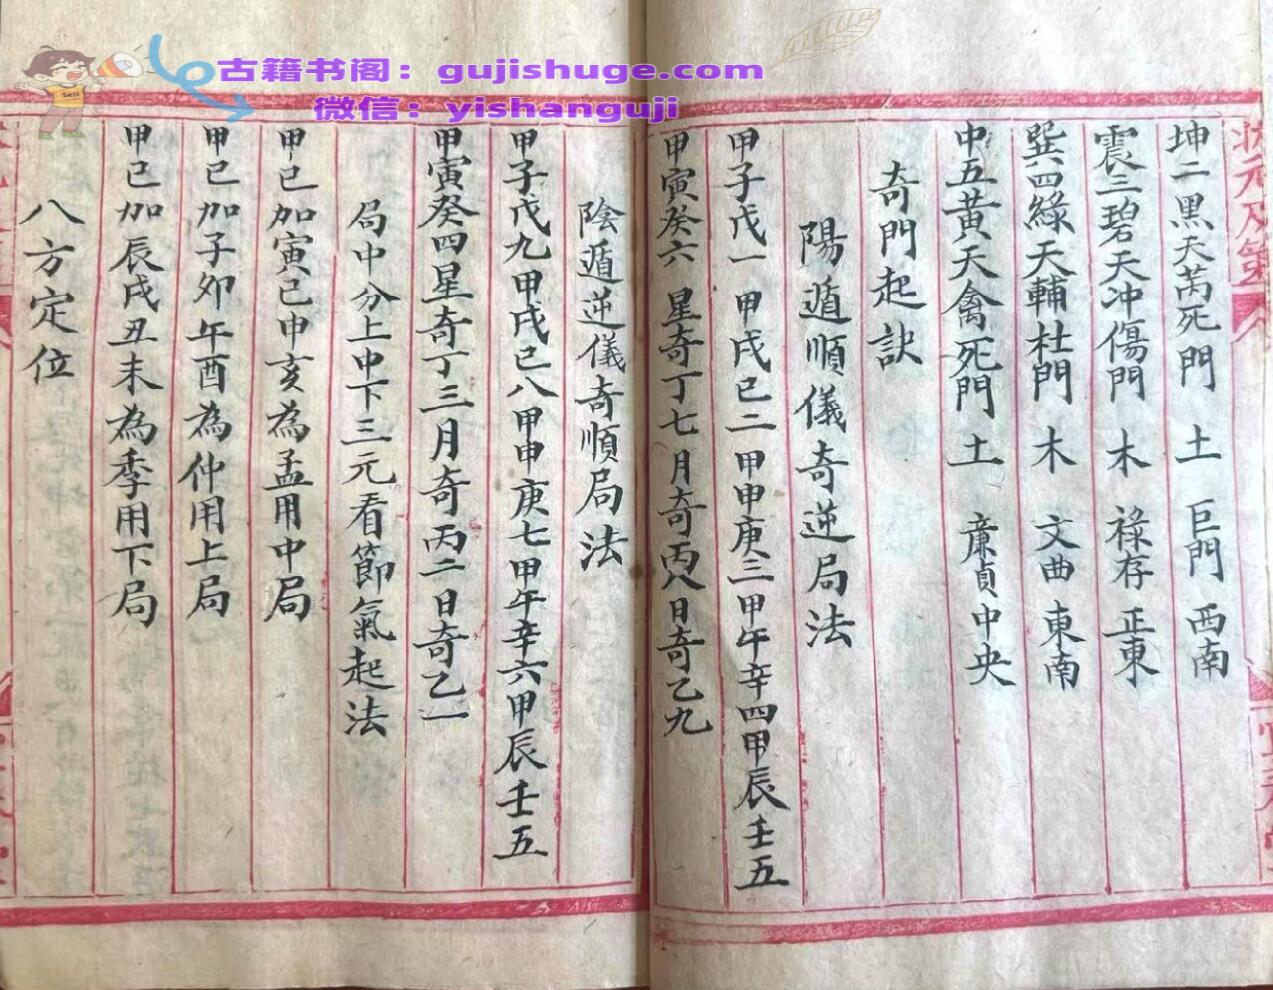 古籍书阁：gujishuge.com
微信：yishanguji
Sale
状元及第
坤二黑天芮死門 土 巨門 西南
震三碧天冲傷門 木 祿存 正東
巽四綠天輔杜門 木 文曲 東南
中五黃天禽死門 土 廉貞中央
奇門起訣
陽遁順儀奇逆局法
甲子戊一 甲戌己二 甲申庚三甲午辛四甲辰壬五
甲寅癸六 星奇丁七 月奇丙八日奇乙九
陰遁逆儀奇順局法
甲子戊九 甲戌己八 甲申庚七 甲午辛六甲辰壬五
甲寅癸四星奇丁三月奇丙二日奇乙一
局中分上中下三元看節氣起法
甲己加寅己申亥為孟用中局
甲己加子卯午酉為仲用上局
甲己加辰戌丑未為季用下局
八方定位